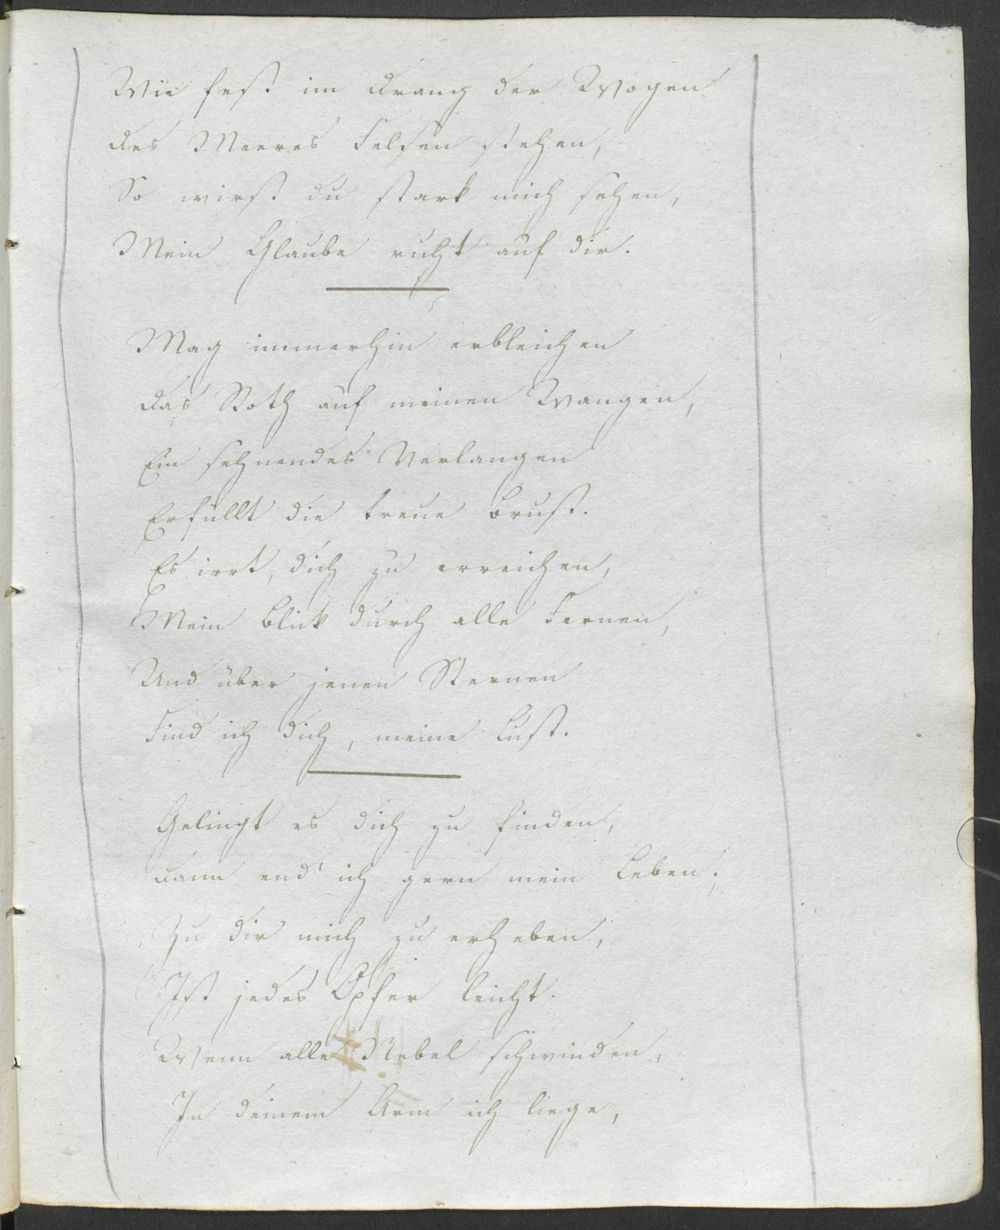 Wie fest im Drang der Wogen
Des Meeres Felsen stehen,
So wirst du stark mich sehen,
Mein Glaube ruht auf dir.
Mag immerhin erbleichen
Das Roth auf meinen Wangen,
Ein sehnendes Verlangen
Erfüllt die treue Brust.
Es irrt, dich zu erreichen,
Mein Blick durch alle Fernen,
Und über jenen Sternen
Find ich dich, meine Lust.
Gelingt es dich zu finden,
Dann end' ich gern mein Leben;
Zu dir mich zu erheben,
Ist jedes Opfer leicht.
Wenn alle Nebel schwinden,
In deinem Arm ich liege,